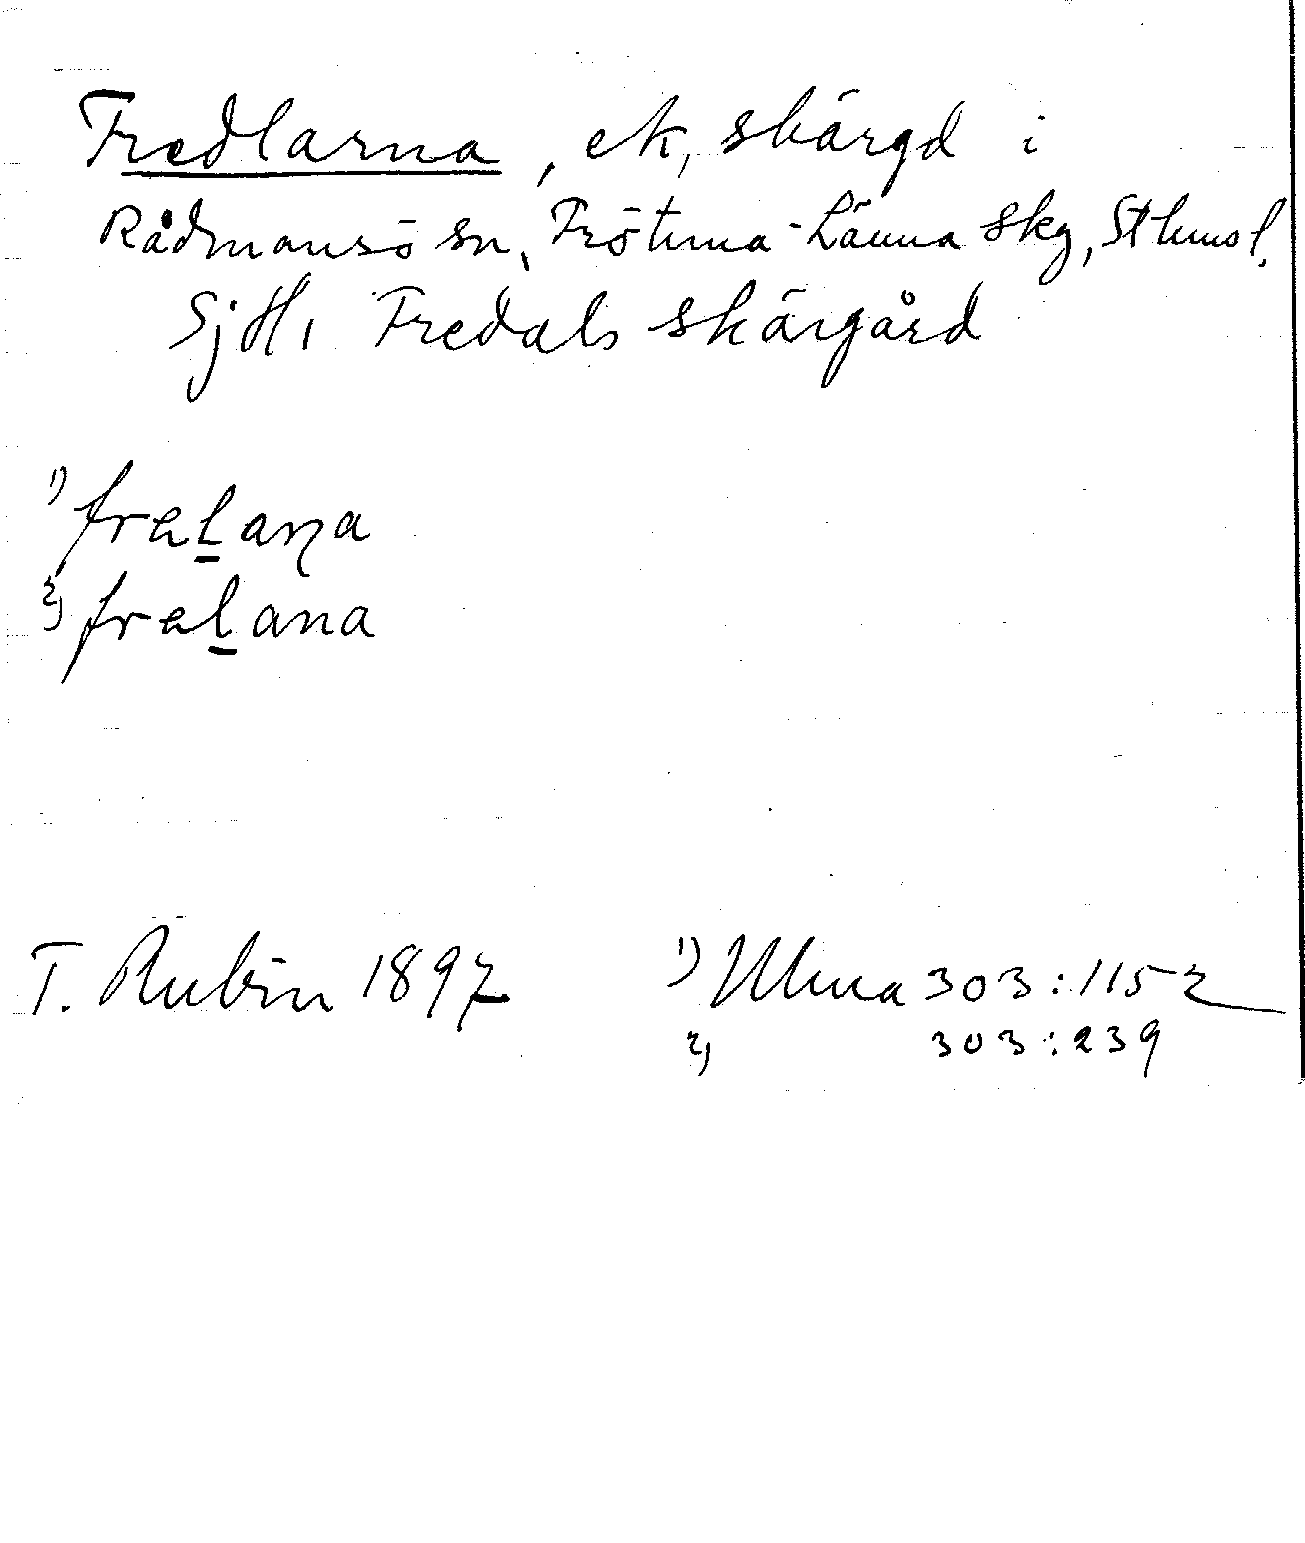 Fredlarna, ek, skärgd i
Rådmansö sn, Frötuna-Länna skg, Sthms l.
Sjtl, Fredals skärgård
1) fraḻaṇa
2) fraḻana
T. Rubin 1897 1) Ulma 303:1152
2) 303:239